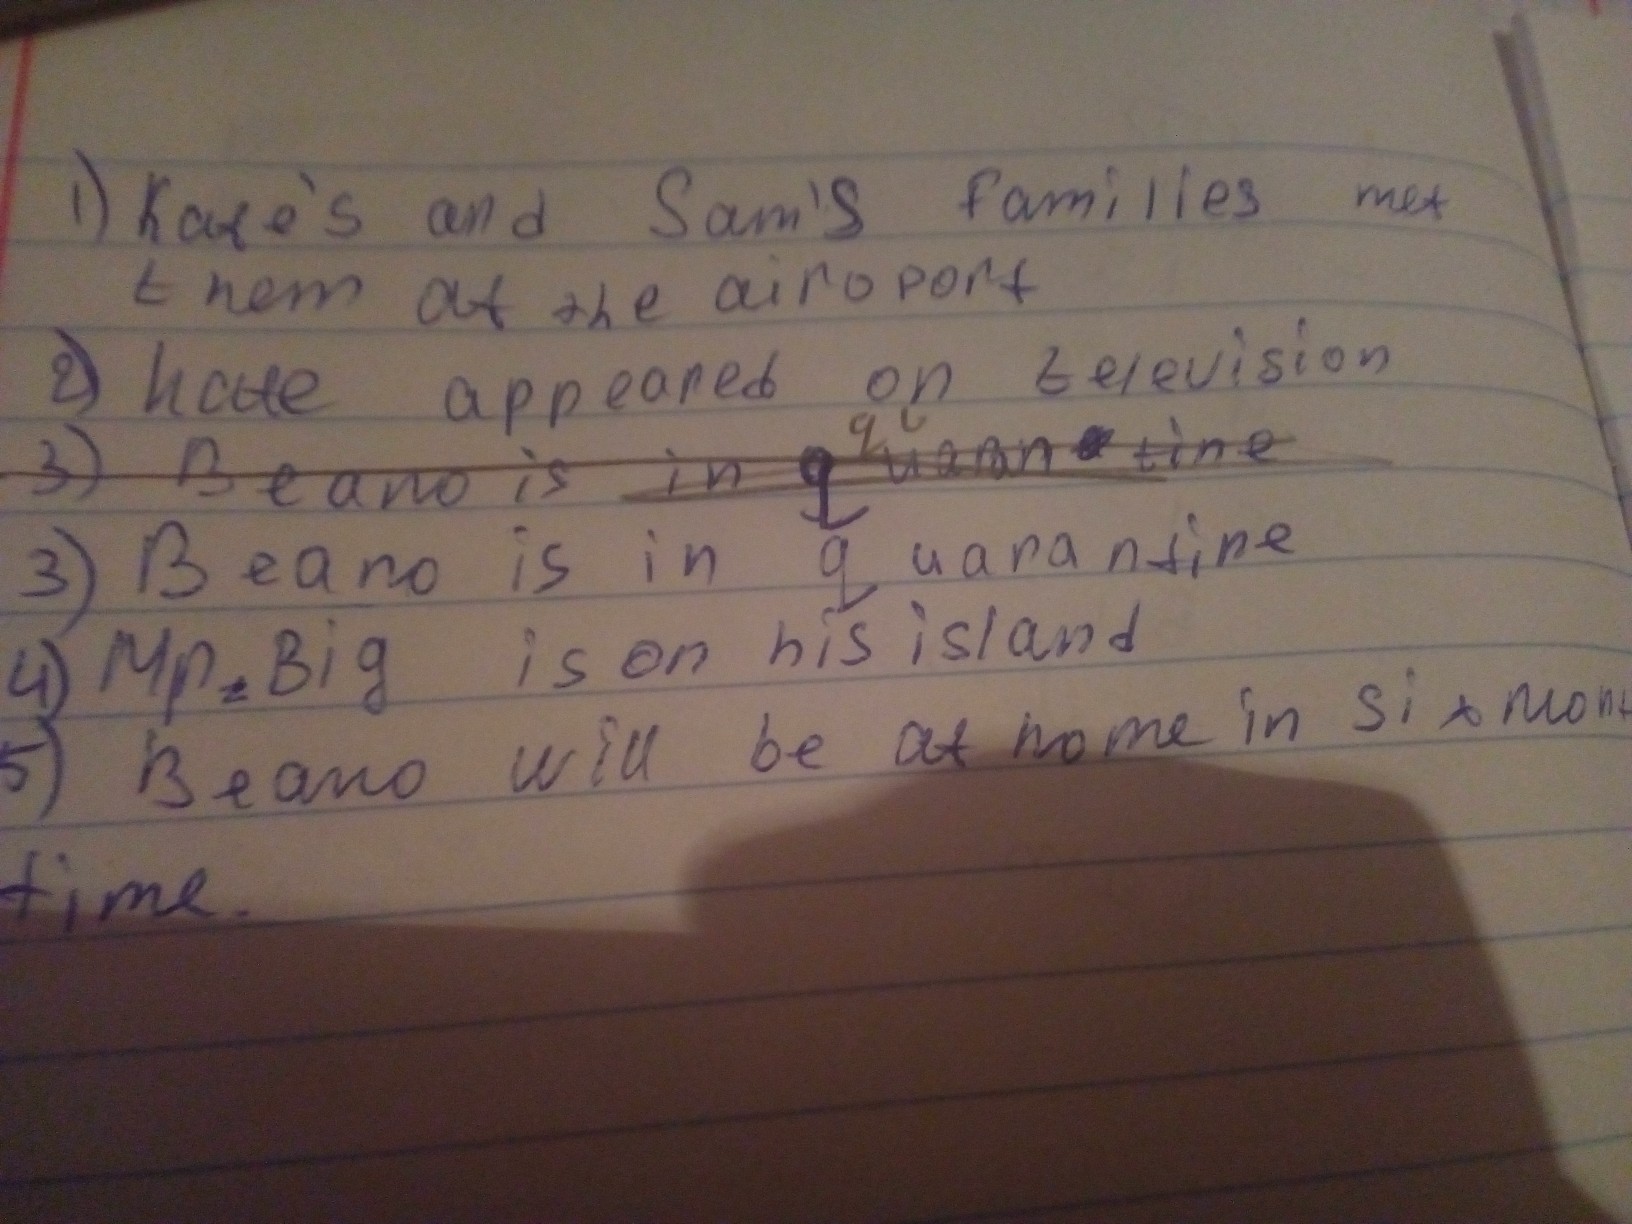 1) Kate's and Sam's families met
them at the airoport
2) Kate appeared on television
3) Beano is in quarantine
3) Beano is in quarantine
4) Mr. Big is on his island
5) Beano will be at home in six mont
time.